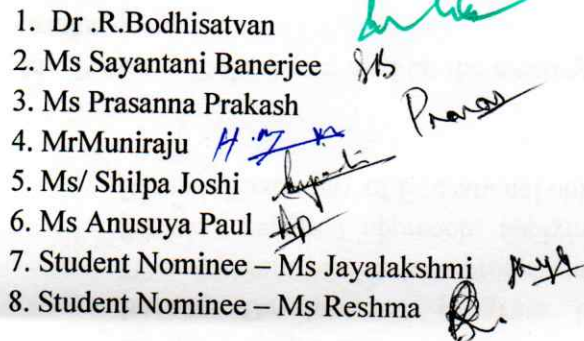 1. Dr .R.Bodhisatvan
2. Ms Sayantani Banerjee SB
3. Ms Prasanna Prakash
4. MrMuniraju
5. Ms/ Shilpa Joshi
6. Ms Anusuya Paul AP
7. Student Nominee – Ms Jayalakshmi
8. Student Nominee – Ms Reshma